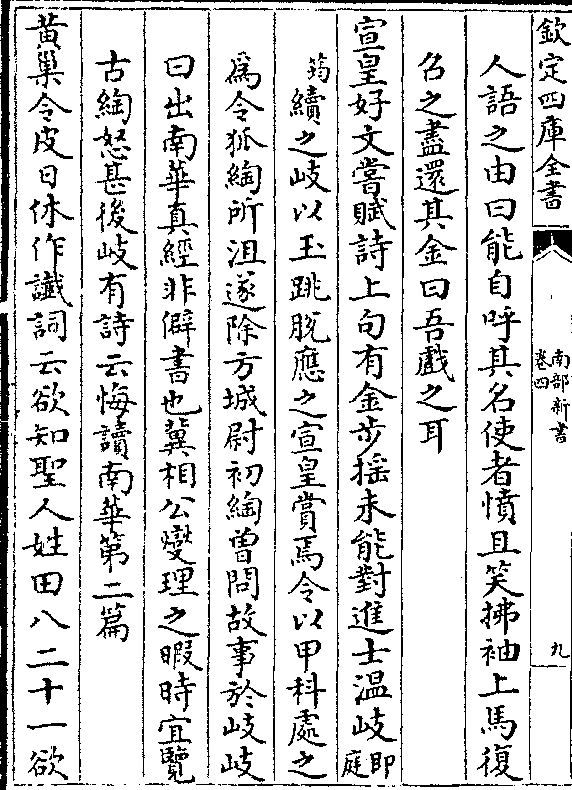 欽定四庫全書
南部新書
卷四
九
人語之由曰能自呼其名使者憤且笑拂袖上馬復
召之盡還其金曰吾戲之耳
宣皇好文嘗賦詩上句有金步揺未能對進士温岐即庭
筠續之岐以玉跳脱應之宣皇賞焉令以甲科處之
爲令狐綯所沮遂除方城尉初綯曽問故事於岐岐
曰出南華真經非僻書也冀相公爕理之暇時宜覽
古綯怒甚後岐有詩云悔讀南華第二篇
黄巢令皮日休作讖詞云欲知聖人姓田八二十一欲